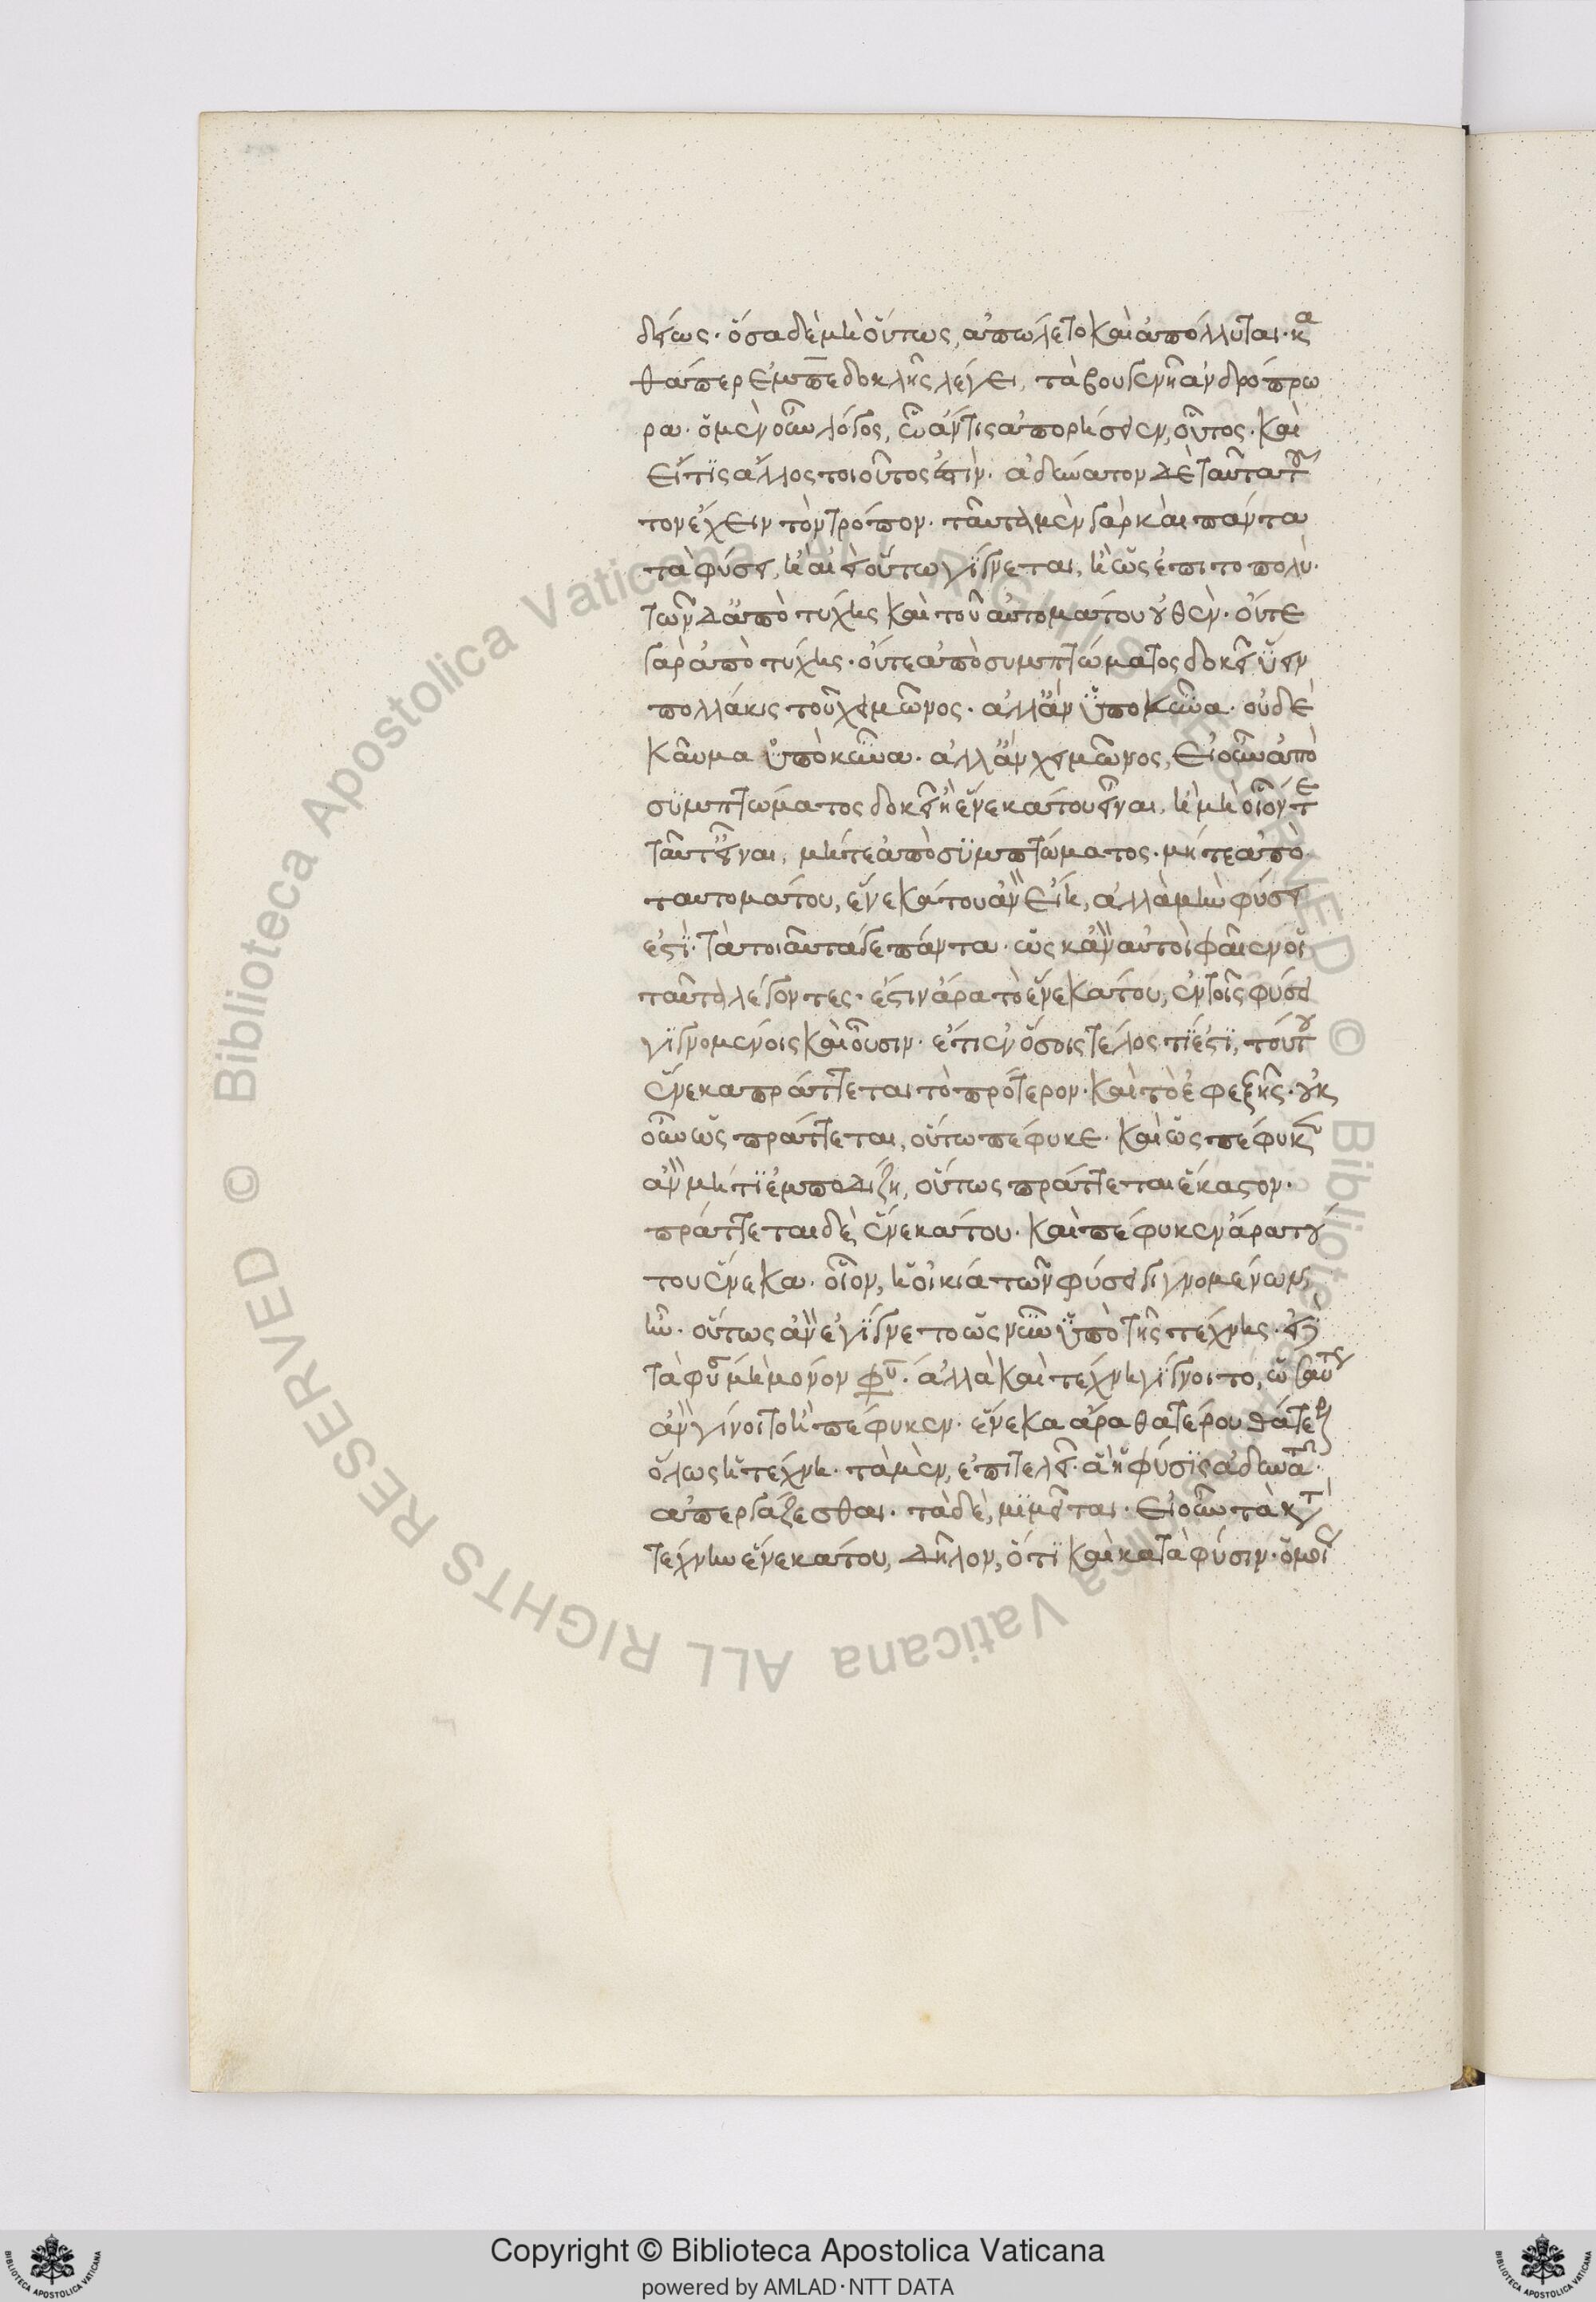 δείως. ὅσα δὲ μὴ οὕτως, ἀπώλετο καὶ ἀπόλλυται. κα
θάπερ ἐμπεδοκλῆς λέγει, τὰ βουγενῆ ἀνδρόπρω
ρα. ὁ μὲν οὖν λόγος, ὧ ἄν τις ἀπορήσειεν, οὗτος. καὶ
εἴ τις ἄλλος τοιοῦτος ἐστὶν. ἀδύνατον δὲ ταῦτα τοῦ
τον ἔχειν τὸν τρόπον. ταῦτα μὲν γὰρ καὶ πάντα
τὰ φύσει, ἢ αἰεὶ οὕτω γίγνεται, ἢ ὡς ἐπι το πολύ.
τῶν δ' ἀπὸ τύχης καὶ τοῦ αὐτομάτου οὐθέν. οὔτε
γὰρ ἀπὸ τύχης. οὔτε ἀπὸ συμπτώματος δοκεῖ ὕειν
πολλάκις τοῦ χειμῶνος. ἀλλ' ἂν ὑπο κύνα. οὐδὲ
καῦμα ὑπὸ κύνα. ἀλλ' ἂν χειμῶνος, εἰ οὖν ἀπὸ
συμπτώματος δοκεῖ ἢ ἕνεκά του εἶναι, ἢ μὴ οἷόν τε
ταῦτ' εἶναι, μήτε ἀπὸ συμπτώματος. μήτε ἀπὸ
ταυτομάτου, ἕνεκά του ἂν εἴη, ἀλλὰ μὴν φύσει
ἐστὶ. τὰ τοιαῦτά γε πάντα. ὡς κἂν αὐτοὶ φαῖεν οἱ
ταῦτα λέγοντες. ἔστιν ἄρα τὸ ἕνεκά του, ἐν τοῖς φύσει
γιγνομένοις καὶ οὖσιν. ἔτι ἐν ὅσοις τέλος τί ἐστι, τούτου
ἕνεκα πράττεται τὸ πρότερον. καὶ τὸ ἐφεξῆς. οὐκ
οῦν ὡς πράττεται, οὕτω πέφυκε. καὶ ὡς πέφυκεν
ἂν μή τι ἐμποδίζη, οὕτως πράττεται ἕκαστον.
πράττεται δὲ ἕνεκά του. καὶ πέφυκεν ἄρα τού
του ἕνεκα. οἷον, ἡ οἰκία τῶν φύσει γιγνομένων
ἦν. οὕτως ἂν ἐγίγνετο ὡς νῦν ὑπὸ τῆς τέχνης. εἰ
τὰ φύσει μὴ μόνον φύσει. ἀλλὰ καὶ τέχνη γίγνοιτο, ὡσαύτως
ἂν γίνοιτο ἢ πέφυκεν. ἕνεκα ἄρα θατέρου θάτερον
ὅλως ἡ τέχνη. τὰ μὲν, ἐπιτελεῖ. ἃ ἡ φύσις ἀδυνατεῖ.
ἀπεργάζεσθαι. τὰ δὲ, μιμεῖται. εἰ οὖν τὰ κατὰ
τέχνην ἕνεκά του, δῆλον, ὅτι καὶ κατὰ φύσιν. ὁμοί
Copyright © Biblioteca Apostolica Vaticana
powered by AMLAD·NTT DATA